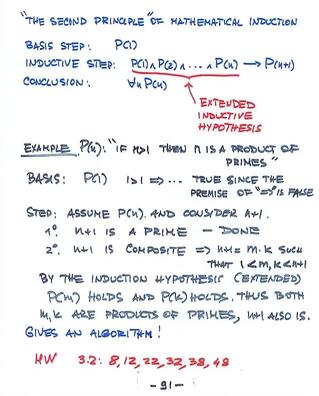 "THE SECOND PRINCIPLE" OF MATHEMATICAL INDUCTION
BASIS STEP: P(1)
INDUCTIVE STEP: P(1)∧P(2)∧...∧P(n) → P(n+1)
CONCLUSION: ∀n P(n)
EXTENDED
INDUCTIVE
HYPOTHESIS
EXAMPLE P(n): "IF n>1 THEN n IS A PRODUCT OF
PRIMES"
BASIS: P(1) 1>1 => ... TRUE SINCE THE
PREMISE OF "=>" IS FALSE
STEP: ASSUME P(n). AND CONSIDER n+1.
1°. n+1 IS A PRIME - DONE
2°. n+1 IS COMPOSITE => n+1 = m·k SUCH
THAT 1<m,k<n+1
BY THE INDUCTION HYPOTHESIS (EXTENDED)
P(m) HOLDS AND P(k) HOLDS. THUS BOTH
m,k ARE PRODUCTS OF PRIMES, n+1 ALSO IS.
GIVES AN ALGORITHM!
HW 3.2: 8, 12, 22, 32, 38, 48
- 91 -